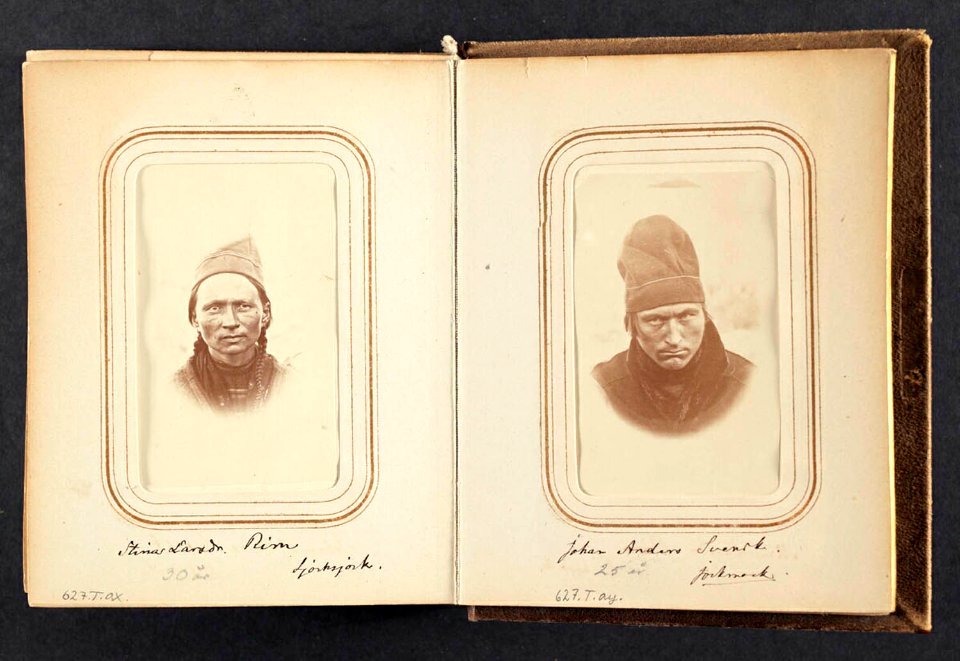 Stina Larsdr. Rim
Sjocksjock.
30 år
627.T.ax.
Johan Anders Svensk.
25 år.
Jockmock.
627.T.ay.